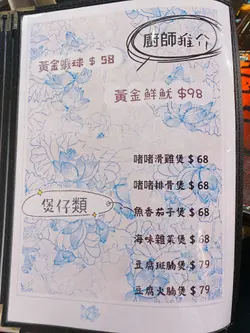 廚師推介
黃金蝦球 $98
黃金鮮魷 $98
煲仔類
啫啫滑雞煲 $68
啫啫排骨煲 $68
魚香茄子煲 $68
海味雜菜煲 $68
豆腐斑腩煲 $79
豆腐火腩煲 $79